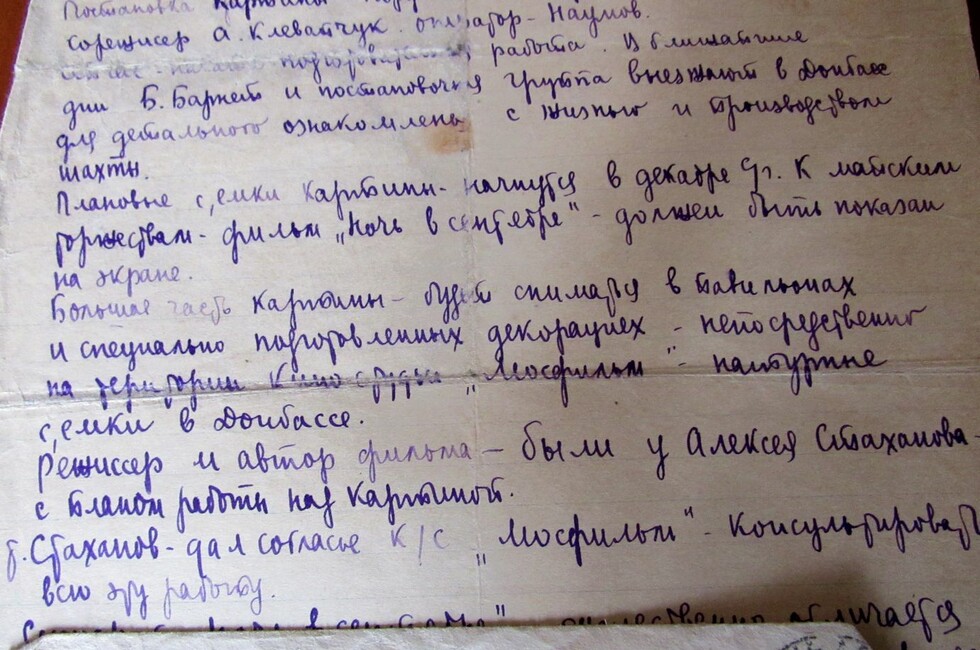 Постановка картины
сорежисер А. Клеватчук. оператор - Наумов.
работа. В ближайшие
дни Б. Барнет и постановочная группа выезжают в Донбасс
для детального ознакомления с жизнью и производством
шахты.
Плановые с,емки картины - начнутся в декабре с/г. К майским
торжествам - фильм „Ночь в сентябре" - должен быть показан
на экране.
Большая часть картины - будет сниматься в павильонах
и специально подготовленных декорациях - непосредственно
на територии киностудии „Мосфильм" - натурные
с,емки в Донбассе.
Режиссер и автор фильма - были у Алексея Стаханова
с планом работы над картиной.
т. Стаханов - дал согласье к/с „Мосфильм" - консультировать
всю эту работу.
отличается